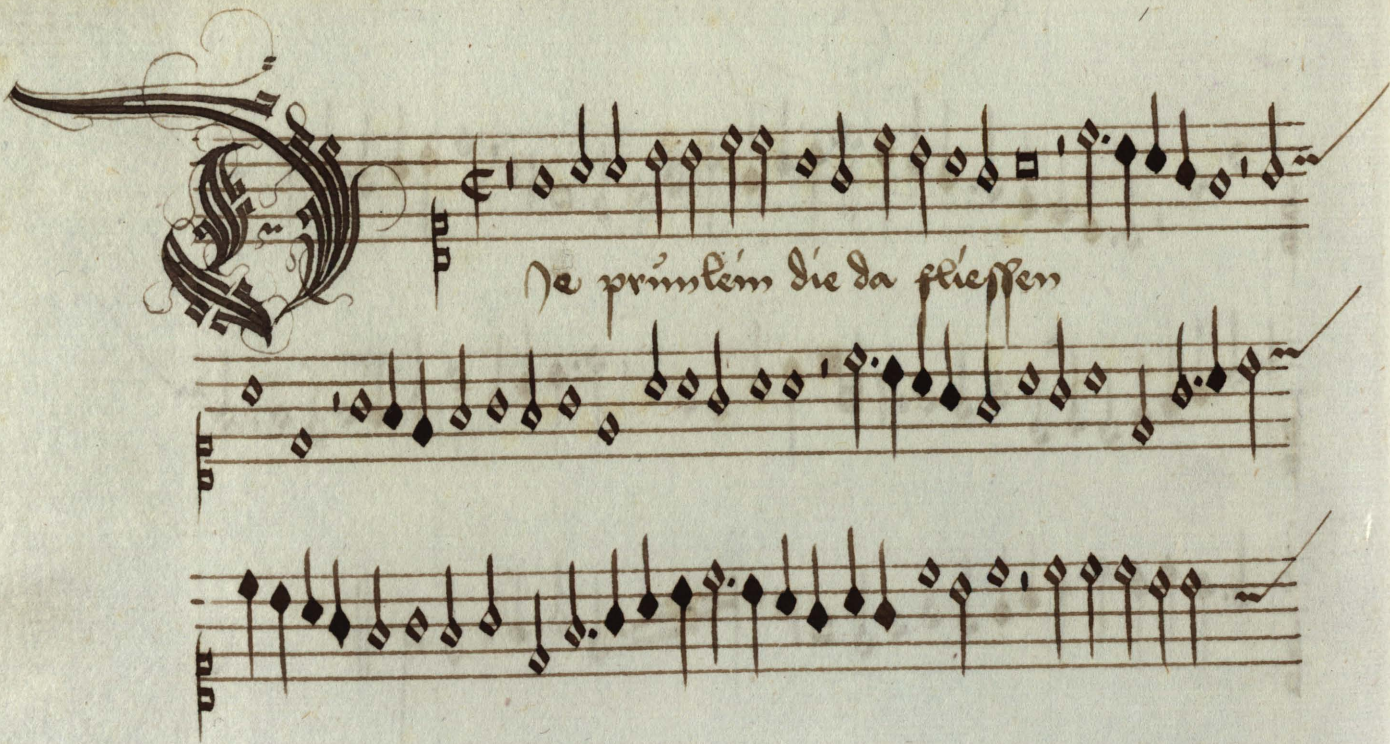 DJe prünlein die da fliessen